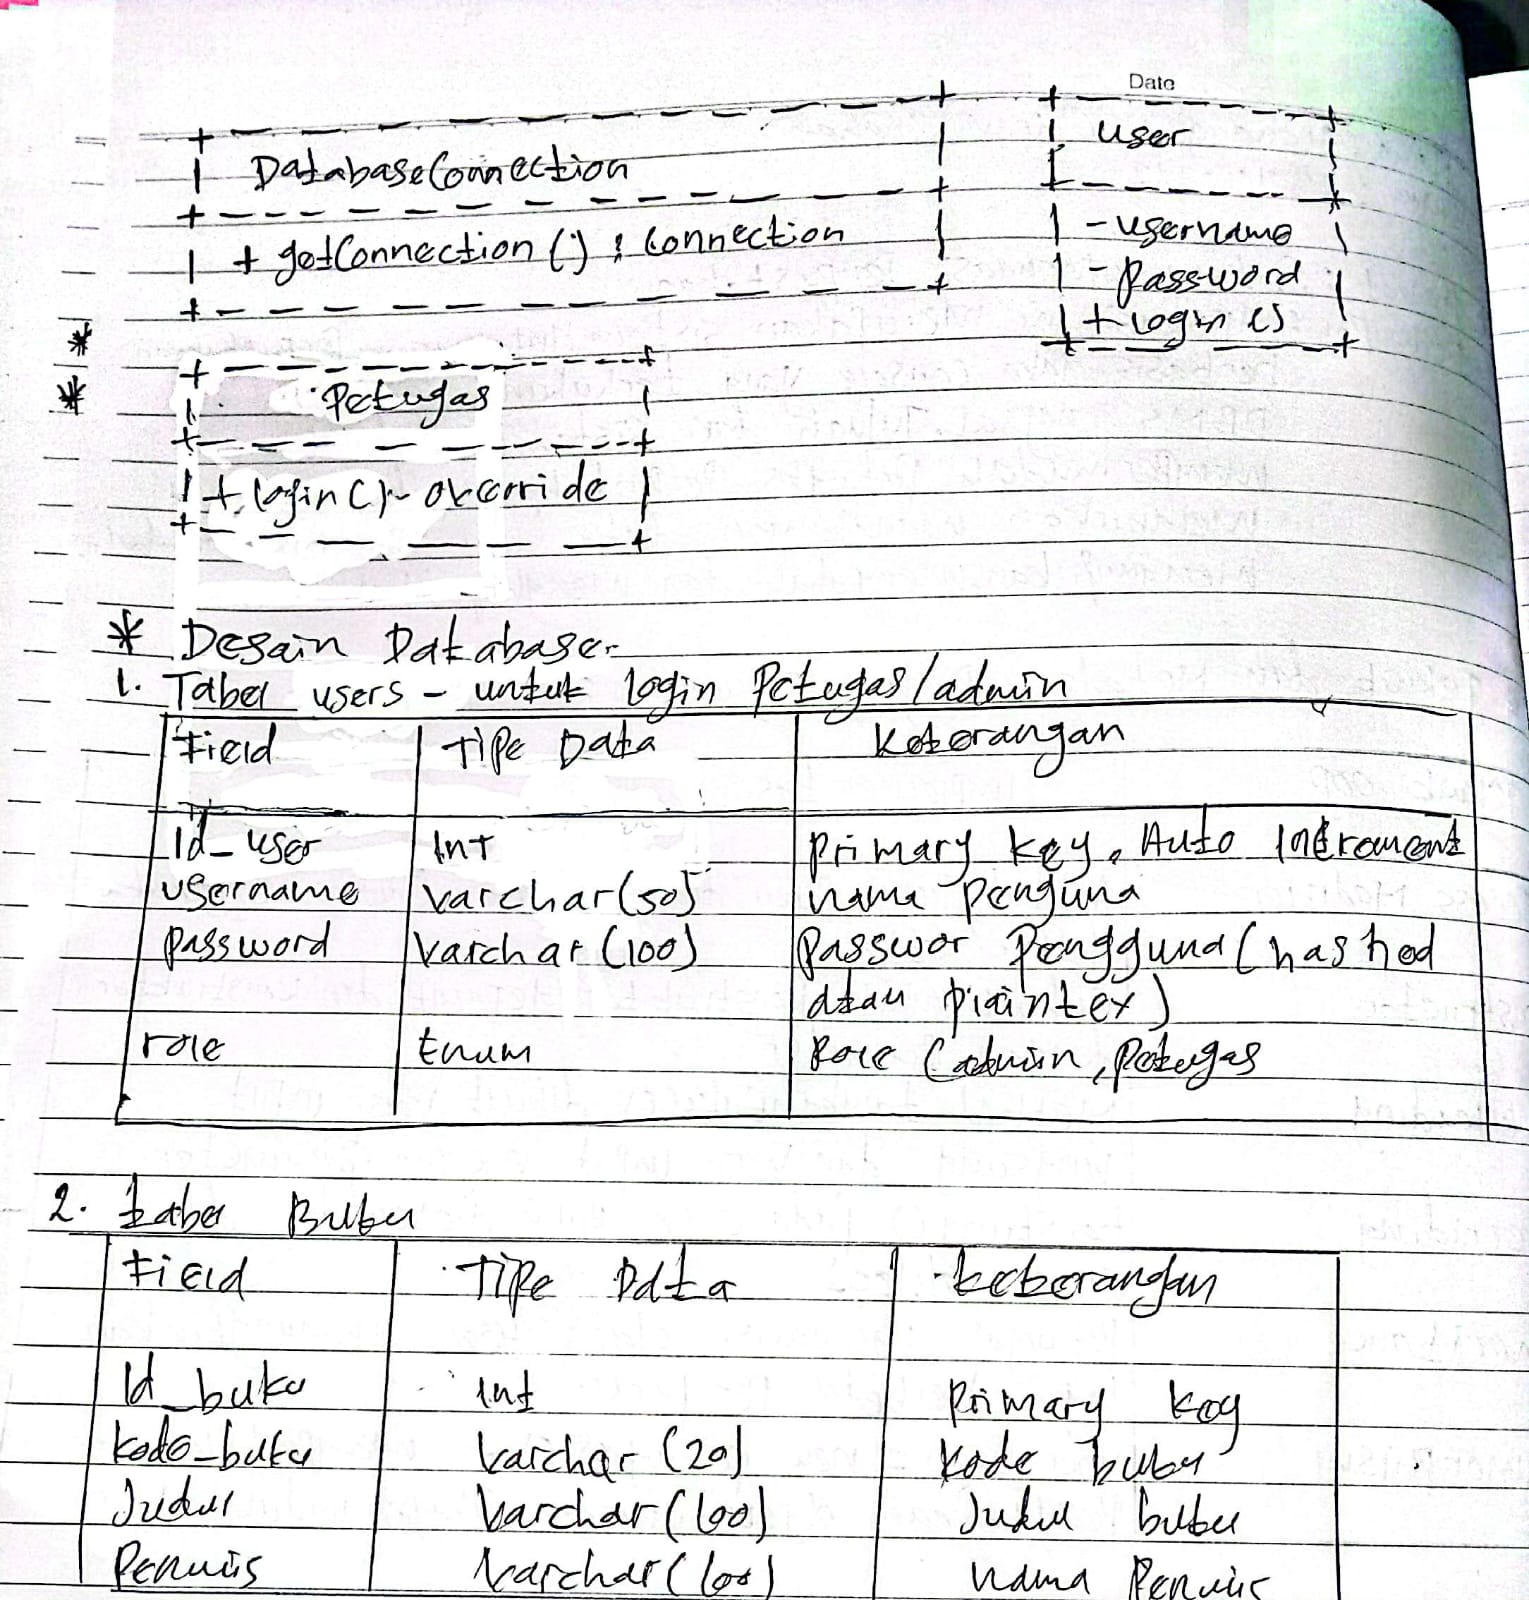 Date
DatabaseConnection
+ getConnection () : Connection
user
- username
- password
+ login ()
*
*
Petugas
+ login () - override
* Desain Database.
1. Tabel users - untuk login Petugas/admin
Field Tipe Data Keterangan
Id_user Int Primary key, Auto Increment
username Varchar(50) nama Penguna
password Varchar (100) Passwor Pengguna (hashed
atau plaintex)
role Enum Role (admin, Petugas
2. tabel Buku
Field Tipe Data keterangan
Id_buku int Primary key
kode_buku Varchar (20) kode buku
Judul Varchar (100) Judul buku
Penulis Varchar (100) nama Penulis